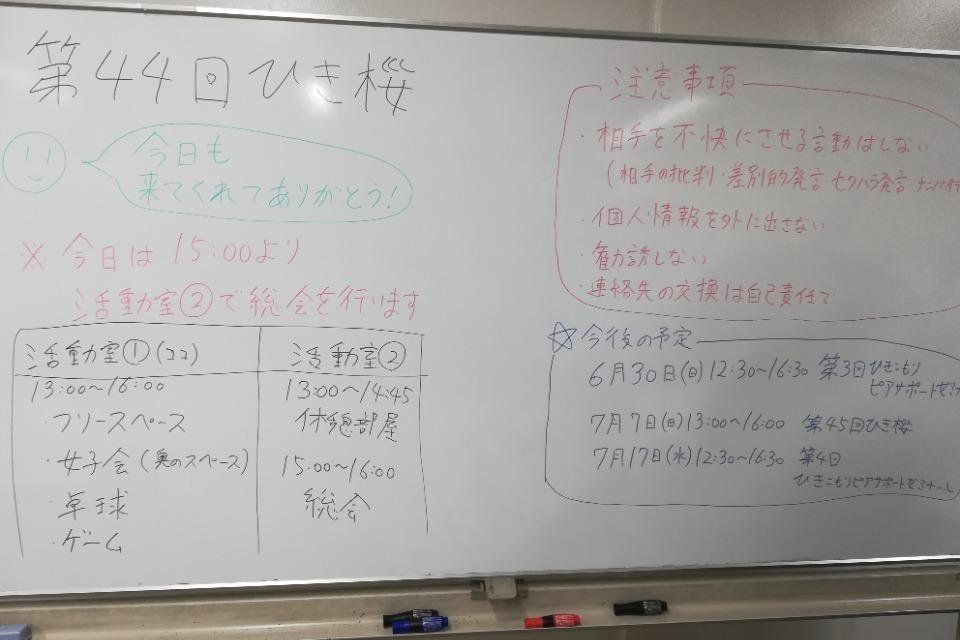 第44回ひき桜
今日も
来てくれてありがとう!
※ 今日は 15:00より
活動室②で総会を行います
活動室①(ココ)
13:00~16:00
・フリースペース
・女子会(奥のスペース)
・卓球
・ゲーム
活動室②
13:00~14:45
休憩部屋
15:00~16:00
総会
注意事項
・相手を不快にさせる言動はしない
(相手の批判・差別的発言・セクハラ発言・ナンパ
・個人情報を外に出さない
・勧誘しない
・連絡先の交換は自己責任で
☆今後の予定
6月30日(日)12:30~16:30 第3回ひきこもり
ピアサポートゼミナ
7月7日(日)13:00~16:00 第45回ひき桜
7月17日(水)12:30~16:30 第4回
ひきこもりピアサポートゼミナール